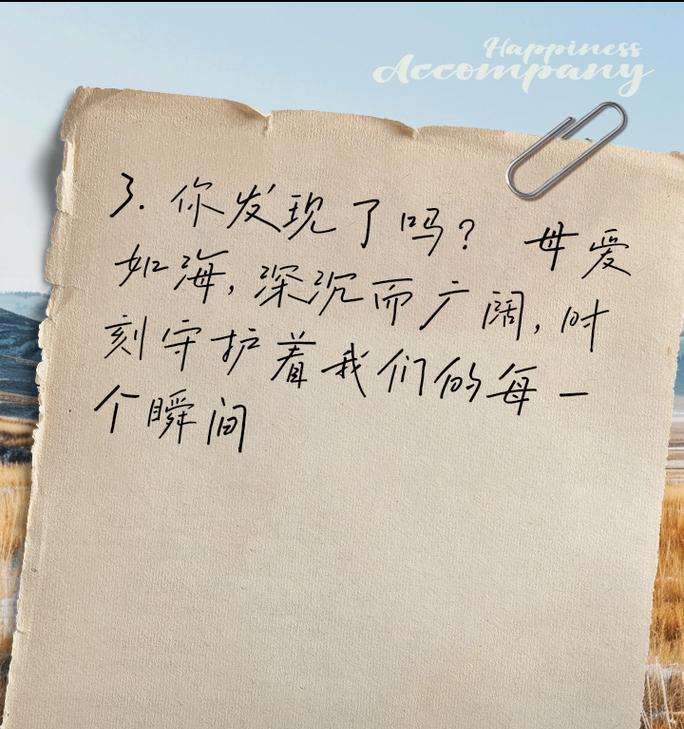 Happiness
Accompany
3. 你发现了吗？ 母爱
如海，深沉而广阔，时
刻守护着我们的每一
个瞬间